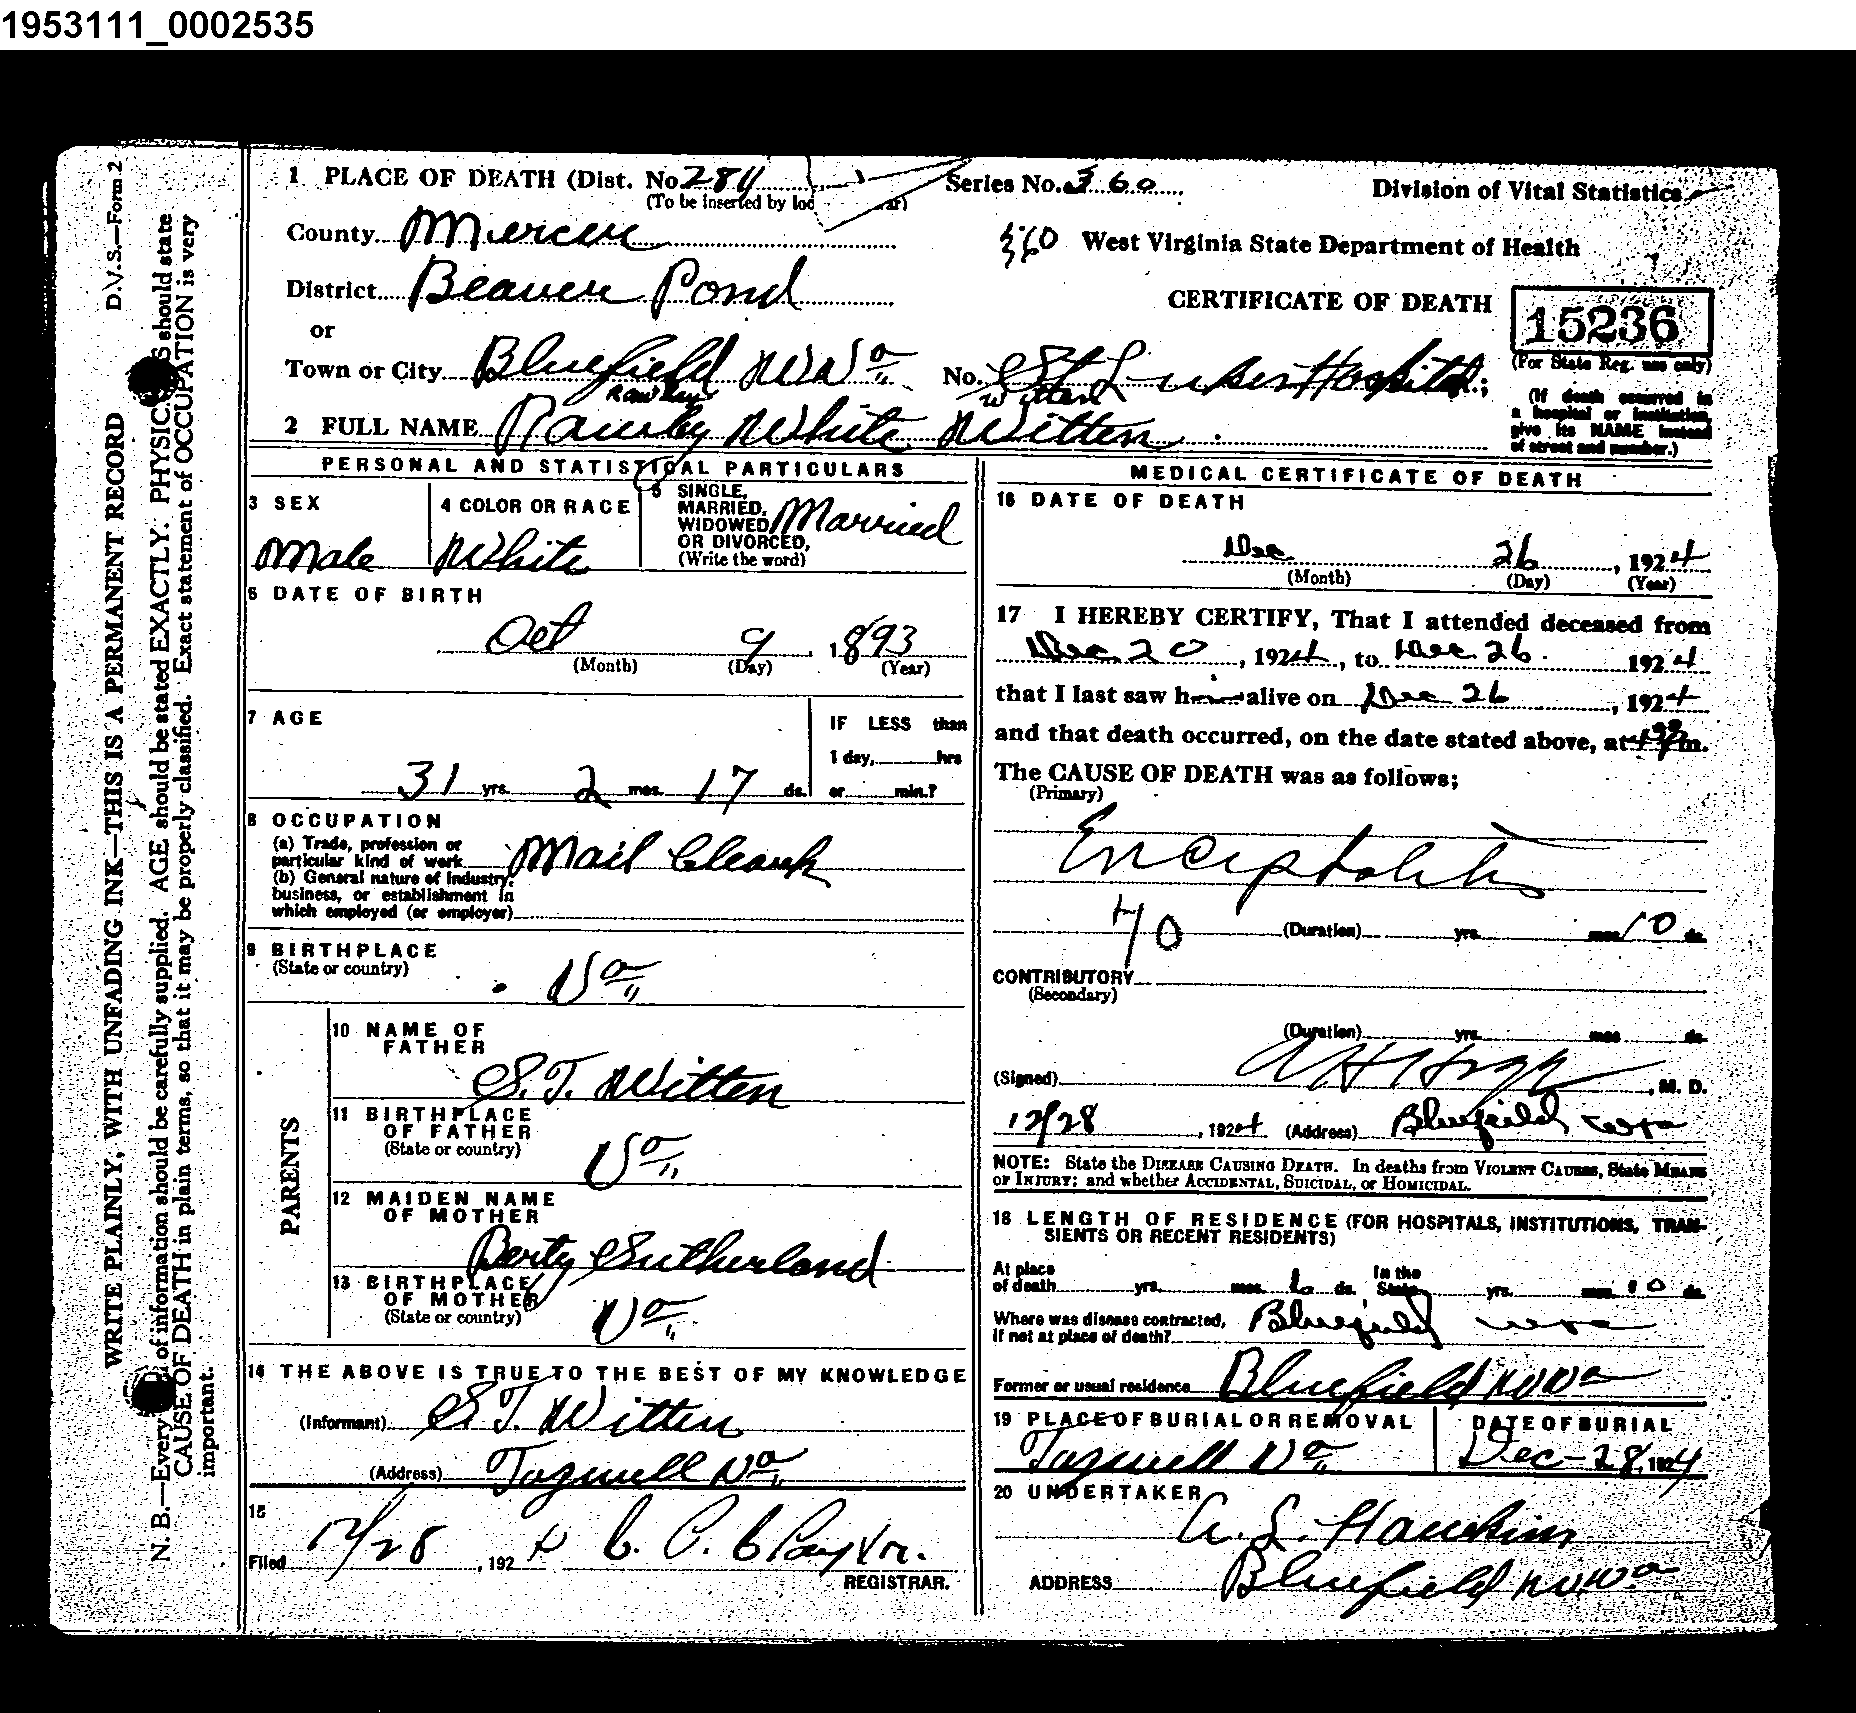 1953111_0002535
1 PLACE OF DEATH (Dist. No. 284 Series No. 360 Division of Vital Statistics
(To be inserted by loc ar)
County Mercer 360 West Virginia State Department of Health
District Beaver Pond CERTIFICATE OF DEATH 15236
or
Town or City Bluefield W Va No. St Lukes Hospital; (For State Reg. use only)
(If death occurred in a hospital or institution, give its NAME instead of street and number.)
Witten
2 FULL NAME Rawley White Witten
PERSONAL AND STATISTICAL PARTICULARS
3 SEX
Male
4 COLOR OR RACE
White
5 SINGLE, MARRIED, WIDOWED OR DIVORCED, (Write the word) Married
6 DATE OF BIRTH
Oct 9, 1893
(Month) (Day) (Year)
7 AGE
IF LESS than
1 day, hrs
31 yrs. 2 mos. 17 ds. or min.?
8 OCCUPATION
(a) Trade, profession or
particular kind of work Mail Cleark
(b) General nature of Industry,
business, or establishment in
which employed (or employer)
9 BIRTHPLACE
(State or country) Va
PARENTS
10 NAME OF FATHER
S. T. Witten
11 BIRTHPLACE OF FATHER
(State or country) Va
12 MAIDEN NAME OF MOTHER
Sutherland
13 BIRTHPLACE OF MOTHER
(State or country) Va
14 THE ABOVE IS TRUE TO THE BEST OF MY KNOWLEDGE
(Informant) S. T. Witten
(Address) Tazwell Va
15
Filed 12/28, 192 4
REGISTRAR.
MEDICAL CERTIFICATE OF DEATH
16 DATE OF DEATH
Dec 26, 1924
(Month) (Day) (Year)
17 I HEREBY CERTIFY, That I attended deceased from
Dec. 20, 1924, to Dec 26. 1924
that I last saw him alive on Dec 26, 1924
and that death occurred, on the date stated above, at m.
The CAUSE OF DEATH was as follows;
(Primary)
70 (Duration) yrs. mos. 10 ds.
CONTRIBUTORY
(Secondary)
(Duration) yrs. mos ds.
(Signed) , M. D.
12/28, 1924 (Address) Bluefield W Va
NOTE: State the DISEASE CAUSING DEATH. In deaths from VIOLENT CAUSES, State MEANS
OF INJURY; and whether ACCIDENTAL, SUICIDAL, or HOMICIDAL.
18 LENGTH OF RESIDENCE (FOR HOSPITALS, INSTITUTIONS, TRAN-
SIENTS OR RECENT RESIDENTS)
At place of death yrs. mos. 6 ds. In the State yrs. mos. 10 ds.
Where was disease contracted,
if not at place of death? Bluefield W Va
Former or usual residence Bluefield W Va
19 PLACE OF BURIAL OR REMOVAL
Tazwell Va
DATE OF BURIAL
Dec - 28, 1924
20 UNDERTAKER
ADDRESS Bluefield W Va
D.V.S.—Form 2
WRITE PLAINLY, WITH UNFADING INK—THIS IS A PERMANENT RECORD
N. B.—Every of information should be carefully supplied. AGE should be stated EXACTLY. PHYSIC S should state
CAUSE OF DEATH in plain terms, so that it may be properly classified. Exact statement of OCCUPATION is very
important.